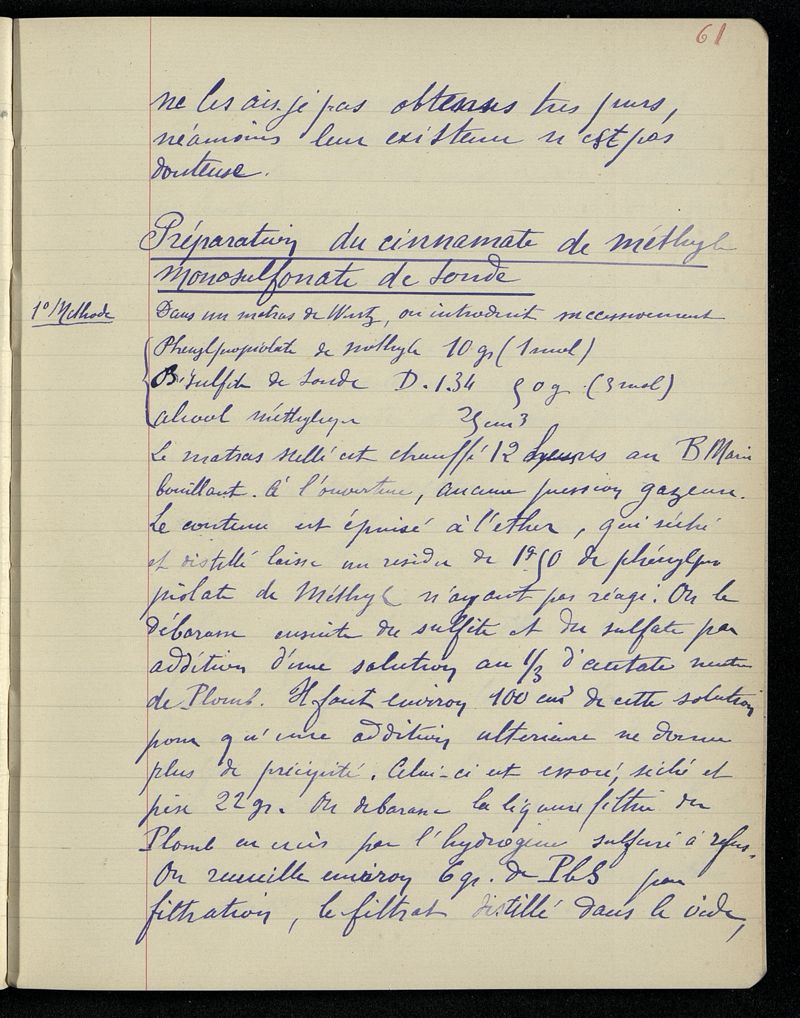 61
ne les ai-je pas obtenus très purs,
néamoins leur existence n'est pas
douteuse.
Préparation du cinnamate de méthyle
monosulfonate de soude
1º/Méthode
Dans un matras de Wurtz, on introduit successivement
Phenylpropiolate de méthyle 10 gr (1 mol)
Bisulfite de soude D. 1.34 50 g. (3 mol)
alcool méthylique 25 cm3
Le matras scellé est chauffé 12 heures au B Marie
bouillant. à l'ouverture, aucune pression gazeuse.
Le contenu est épuisé à l'ether, qui séché
et distillé laisse un residu de 1g50 de phénylpro
piolate de Méthyle n'ayant pas réagi. On le
débarasse ensuite du sulfite et du sulfate par
addition d'une solution au 1/3 d'acetate neutre
de Plomb. Il faut environ 100 cm3 de cette solution
pour qu'une addition ulterieure ne donne
plus de précipité. Celui-ci est essoré, séché et
pèse 22 gr. On debarasse la liqueur filtrée du
Plomb en excès par l'hydrogène sulfuré à refus.
On recueille environ 6 gr. de PbS par
filtration, le filtrat distillé dans le vide,